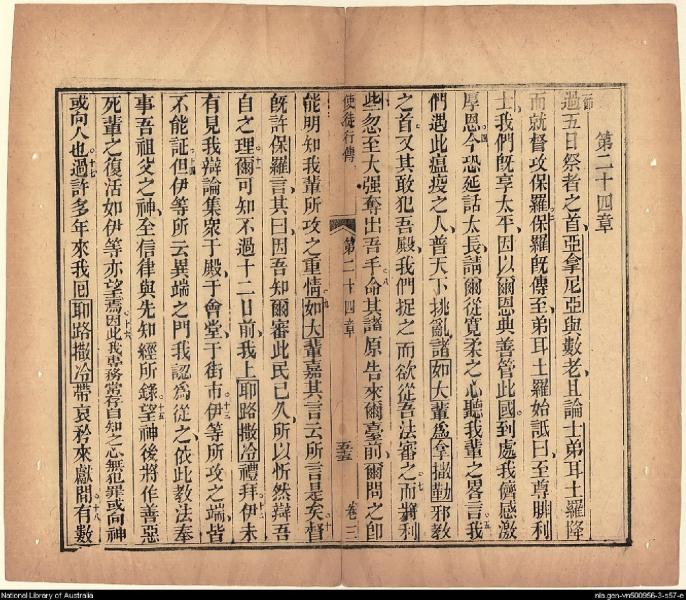 第二十四章
過五日祭者之首亞拿尼亞與數老且論士弟耳土羅降
而就督攻保羅保羅既傳至弟耳土羅始詆曰至尊腓利
士我們既享太平因以爾恩典善管此國到處我儕感激
厚恩今恐延話太長請爾從寬柔之心聽我輩之畧言我
們遇此瘟疫之人普天下挑亂諸如大輩為拿撒勒邪教
之首又其敢犯吾殿我們捉之而欲從吾法審之而將利
些忽至大强奪出吾手命其諸原告來爾臺前爾問之即
使徒行傳
第二十四章
卷三
能明知我輩所攻之重情如大輩嘉其言云所言是矣督
既許保羅言其曰因吾知爾審此民已久所以忻然辯吾
自之理爾可知不過十二日前我上耶路撒冷禮拜伊未
有見我辯論集衆于殿于會堂于街市伊等所攻之端皆
不能証但伊等所云異端之門我認為從之依此教法奉
事吾祖父之神至信律與先知經所錄望神後將作善惡
死輩之復活如伊等亦望焉因此我專務常存自知之心無犯罪或向神
或向人也過許多年來我囘耶路撒冷帶哀矜來獻間有數
National Library of Australia
nla.gen-vn500956-3-s57-e